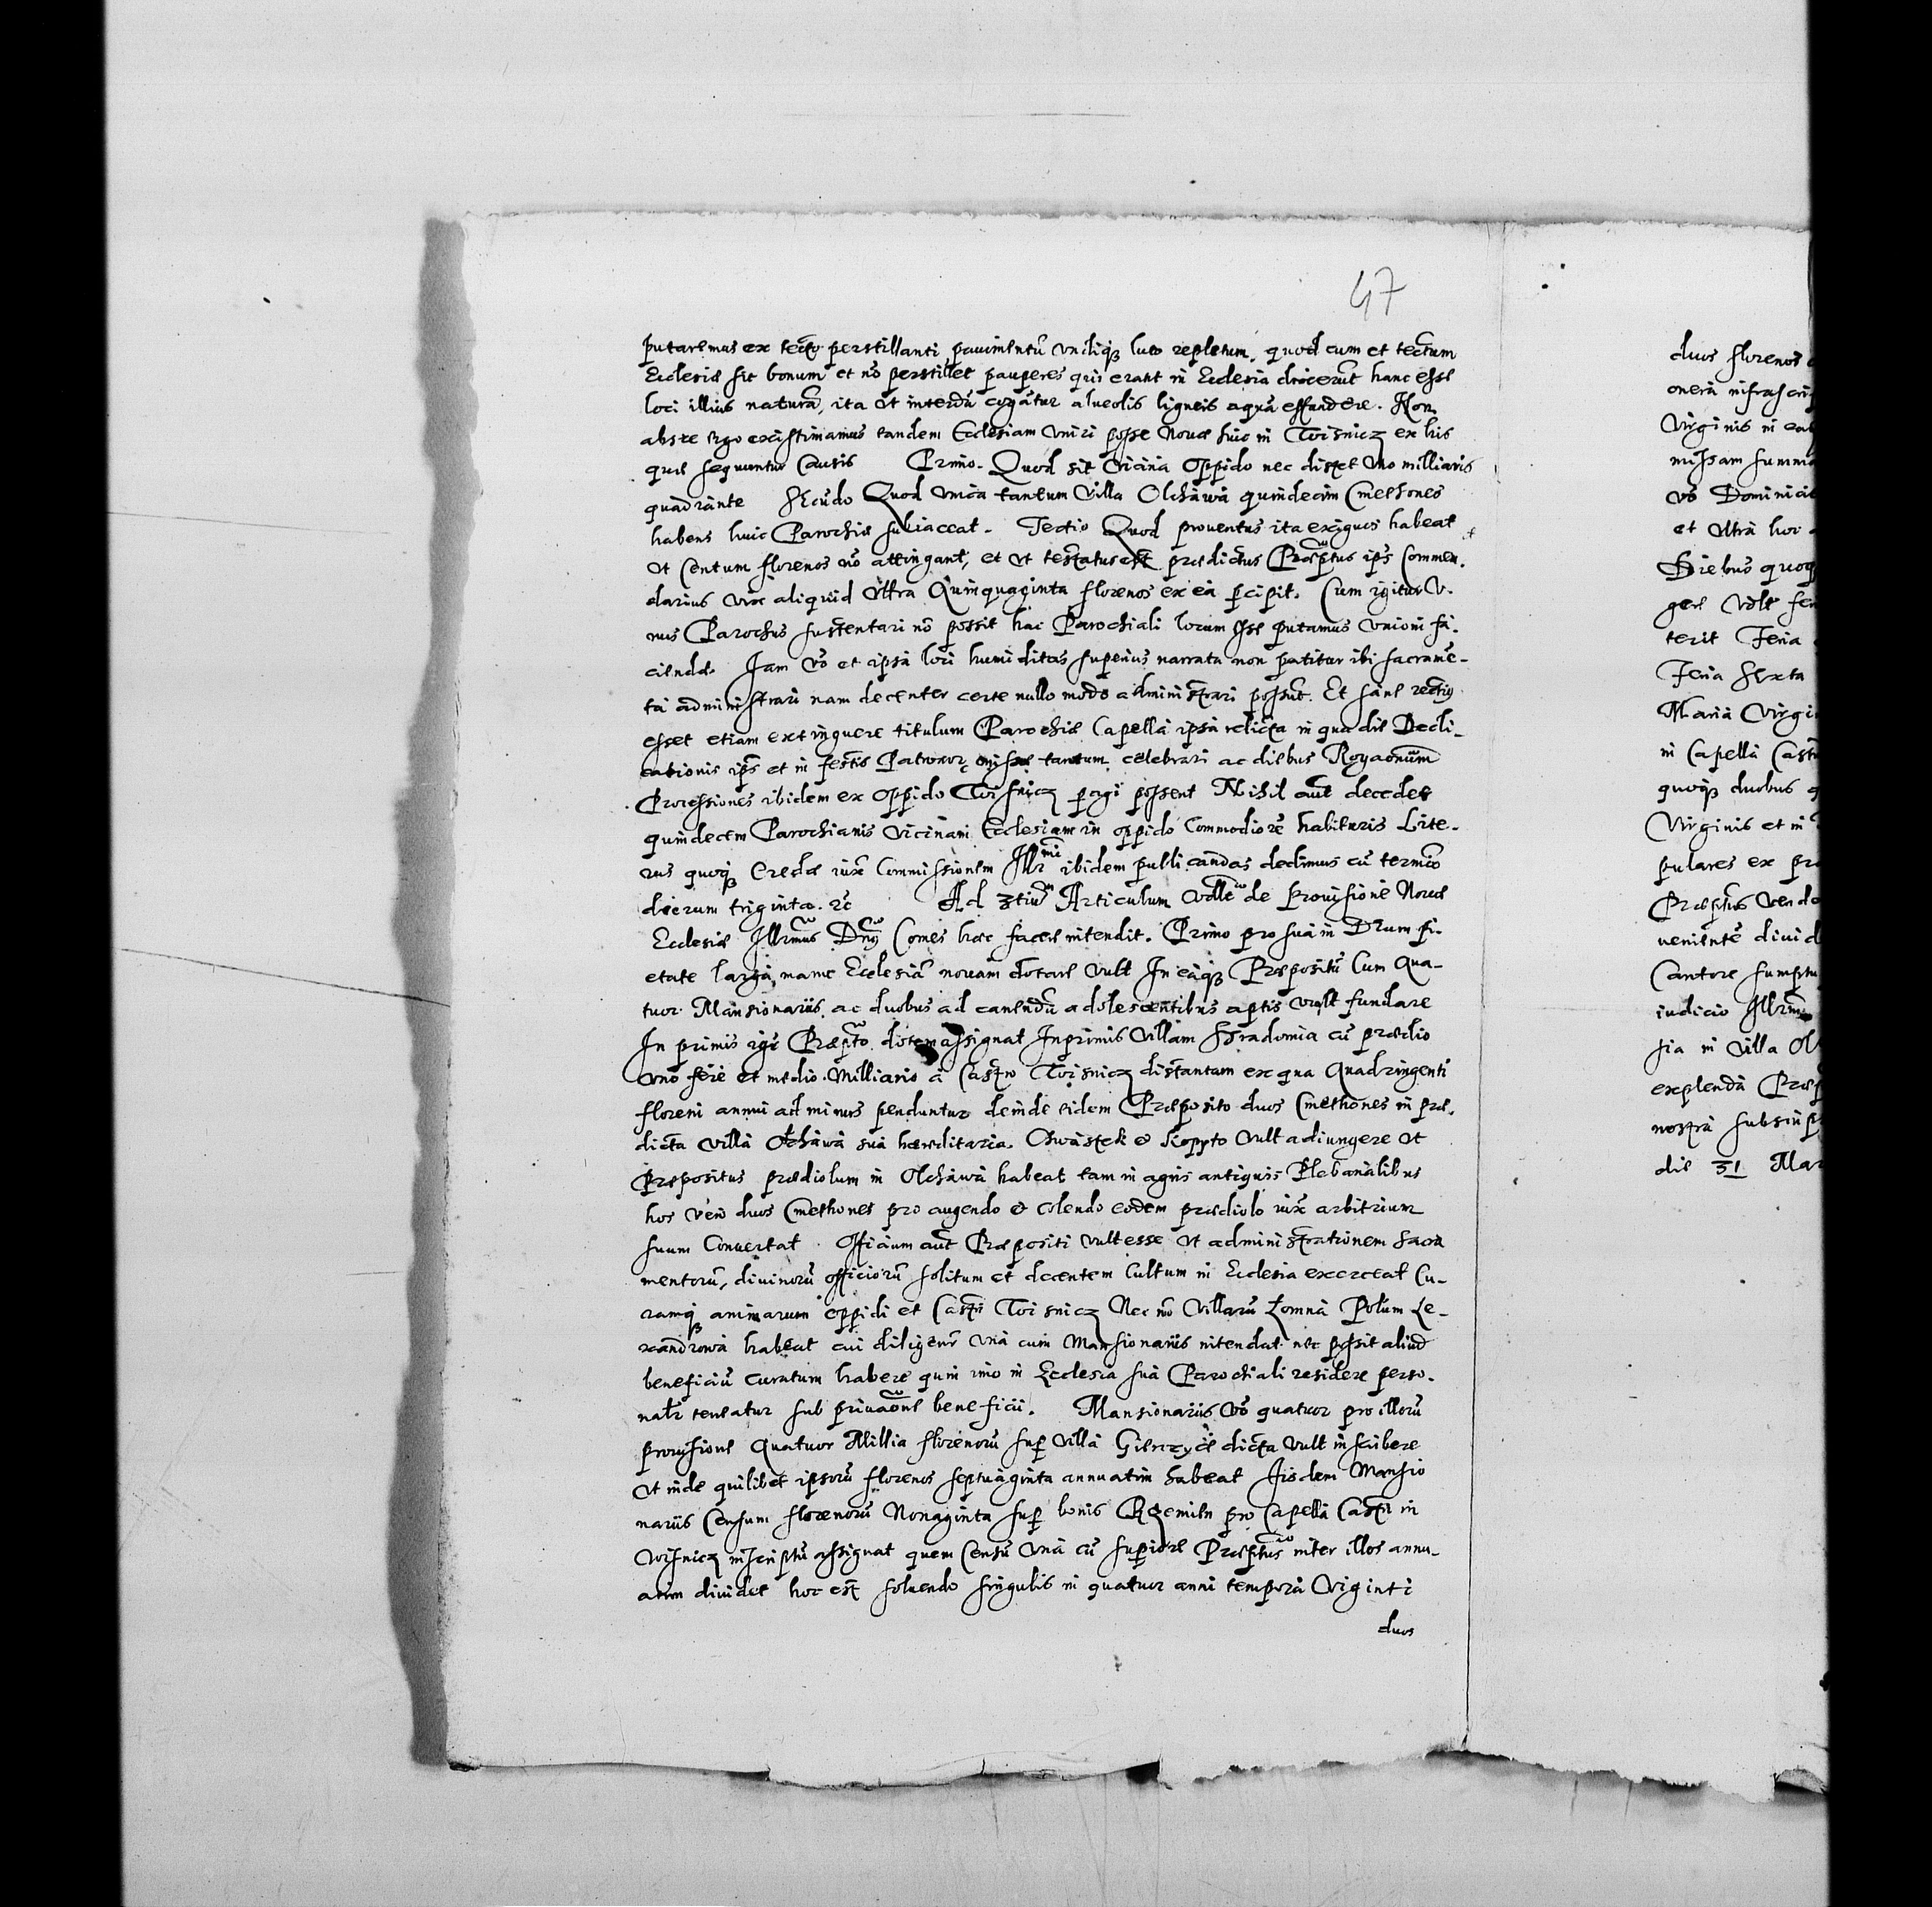 47
putaremus ex tecto perstillanti pauimentū vndiq₃ luto repletum, quod cum et tectum
Ecclesiæ sit bonum et nō perstillet pauperes qui erant in Ecclesia dixerūt hanc esse
loci illius naturā, ita vt interdū cogātur alueolis ligneis aquā effundere. Non
abs re ergo existimamus tandem Ecclesiam vniri posse Nouæ huic in Wisnicz ex his
quæ sequuntur Causis Primo. Quod sit vicina Oppido nec distet vno milliaris
quadrante Secūdo Quod vnica tantum Villa Olchawa quindecim Cmethones
habens huic Parochiæ subiaceat. Tertio Quod prouentus ita exiguos habeat
vt Centum florenos nō attingant, et vt testatus est prædictus Præptus ips Commen.
darius vix aliquid Vltra Quinquaginta florenos ex ea ꝑcipit. Cum igitur v.
nus Parochus sustentari nō possit hac Parochiali locum esse putamus Vnioni fa.
ciendæ. Jam vō et ipsa loci humiditas superius narrata non patitur ibi sacramē-
ta administrari nam decenter certe nullo modo administrari possūt. Et sane rectiꝰ
esset etiam extinguere titulum Parochiæ Capella ipsa relicta in qua die Dedi-
cationis ips et in festis Patronorꝝ missæ tantum celebrari ac diebus Rogaonūm
Processiones ibidem ex Oppido Wisnicz ꝑagi possent Nihil aūt decedet
quindecem Parochianis vicinam Ecclesiam in oppido Commodiorē habituris Lite-
ras quoq₃ Credæ iux Commissionem Illr mi ibidem publicandas dedimus cū termīo
dierum triginta. &c Ad 3tiū Articulum de prouisione Nouæ
Ecclesiæ Illrmus Dnꝰ Comes hæc facere intendit. Primo pro sua in Deum pi.
etate larga manu Ecclesiā nouam dotare vult In eaq₃ Præpositū Cum Qua-
tuor Mansionariis ac duobus ad canendū adolescentibus aptis vult fundare
In primis igr Præpto dotem assignat Inprimis Villam Hradomia cū prædio
vno fere et medio Milliario à Castro Wisnicz distantem ex qua Quadringenti
floreni annui ad minus penduntur deinde eidem Præposito duos Cmethones in præ.
dicta villa Olchawa sua hæreditaria. Chwastek & Scoppto vult adiungere vt
Præpositus prædiolum in Olchawa habeat tam in agris antiquis Plebanalibus
hos vero duos Cmethones pro augendo & colendo eodem prædiolo iux arbitrium
suum Conuertat. Officium aūt Præpositi vult esse vt administrationem Sacra
mentorū, diuinorū officiorū solitum et decentem Cultum in Ecclesia exerceat Cu-
ramq₃ animarum oppidi et Castri Wisnicz Nec nō Villarū Łomna Polum Le-
xandrowa habeat cui diligenr vna cum Mansionariis intendat nec possit aliud
beneficiū Curatum habere quin imo in Ecclesia sua Parochiali residere perso.
nalr teneatur sub priuaōne beneficii. Mansionariis vō quatuor pro illorū
prouisione Quatuor Millia florenorū suꝑ villa Gierczyce dicta vult inscribere
vt inde quilibet ipsorū florenos septuaginta annuatim habeat Jisdem Mansio
nariis Censum florenorū Nonaginta suꝑ bonis Rzemien pro Capella Castri in
Wisnicz inscriptū assignat quem Censū vna cū suꝑiore Præptus inter illos annu-
atim diuidet hoc est soluendo singulis in quatuor anni tempora Viginti
duos
duos florenos
onera infrascri
Virginis in ea
missam summa
vō Dominici
et Vltra hoc
Diebus quoq₃
gere Volt
terit Feria
Feria Sexta
Maria Virgi
in Capella Cast
quoq₃ duobus
Virginis et in
pulares ex pr
uenientē diuid
Cantore sumptu
iudicio Illrm
sia in Villa Ol
explenda Præ
nostra subscrip
die 31 Mar